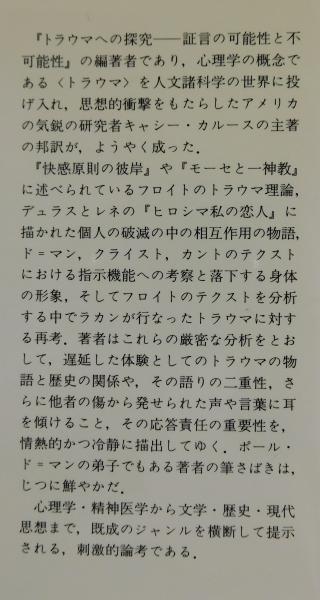 『トラウマへの探究――証言の可能性と不
可能性』の編著者であり，心理学の概念で
ある〈トラウマ〉を人文諸科学の世界に投
げ入れ，思想的衝撃をもたらしたアメリカ
の気鋭の研究者キャシー・カルースの主著
の邦訳が，ようやく成った．
『快感原則の彼岸』や『モーセと一神教』
に述べられているフロイトのトラウマ理論，
デュラスとレネの『ヒロシマ私の恋人』に
描かれた個人の破滅の中の相互作用の物語，
ド＝マン，クライスト，カントのテクスト
における指示機能への考察と落下する身体
の形象，そしてフロイトのテクストを分析
する中でラカンが行なったトラウマに対す
る再考．著者はこれらの厳密な分析をとお
して，遅延した体験としてのトラウマの物
語と歴史の関係や，その語りの二重性，さ
らに他者の傷から発せられた声や言葉に耳
を傾けること，その応答責任の重要性を，
情熱的かつ冷静に描出してゆく．ポール・
ド＝マンの弟子でもある著者の筆さばきは，
じつに鮮やかだ．
心理学・精神医学から文学・歴史・現代
思想まで，既成のジャンルを横断して提示
される，刺激的論考である．